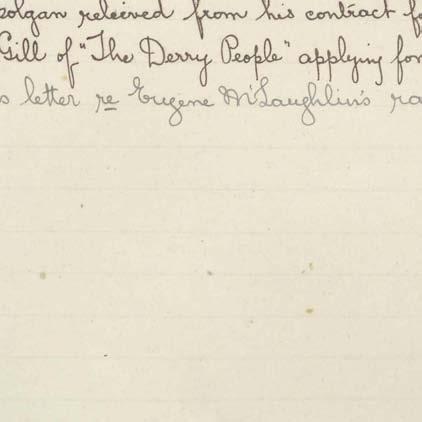 olgan releived from his contract fo
Gill of "The Derry People" applying for
s letter re Eugene McLaughlin's ra